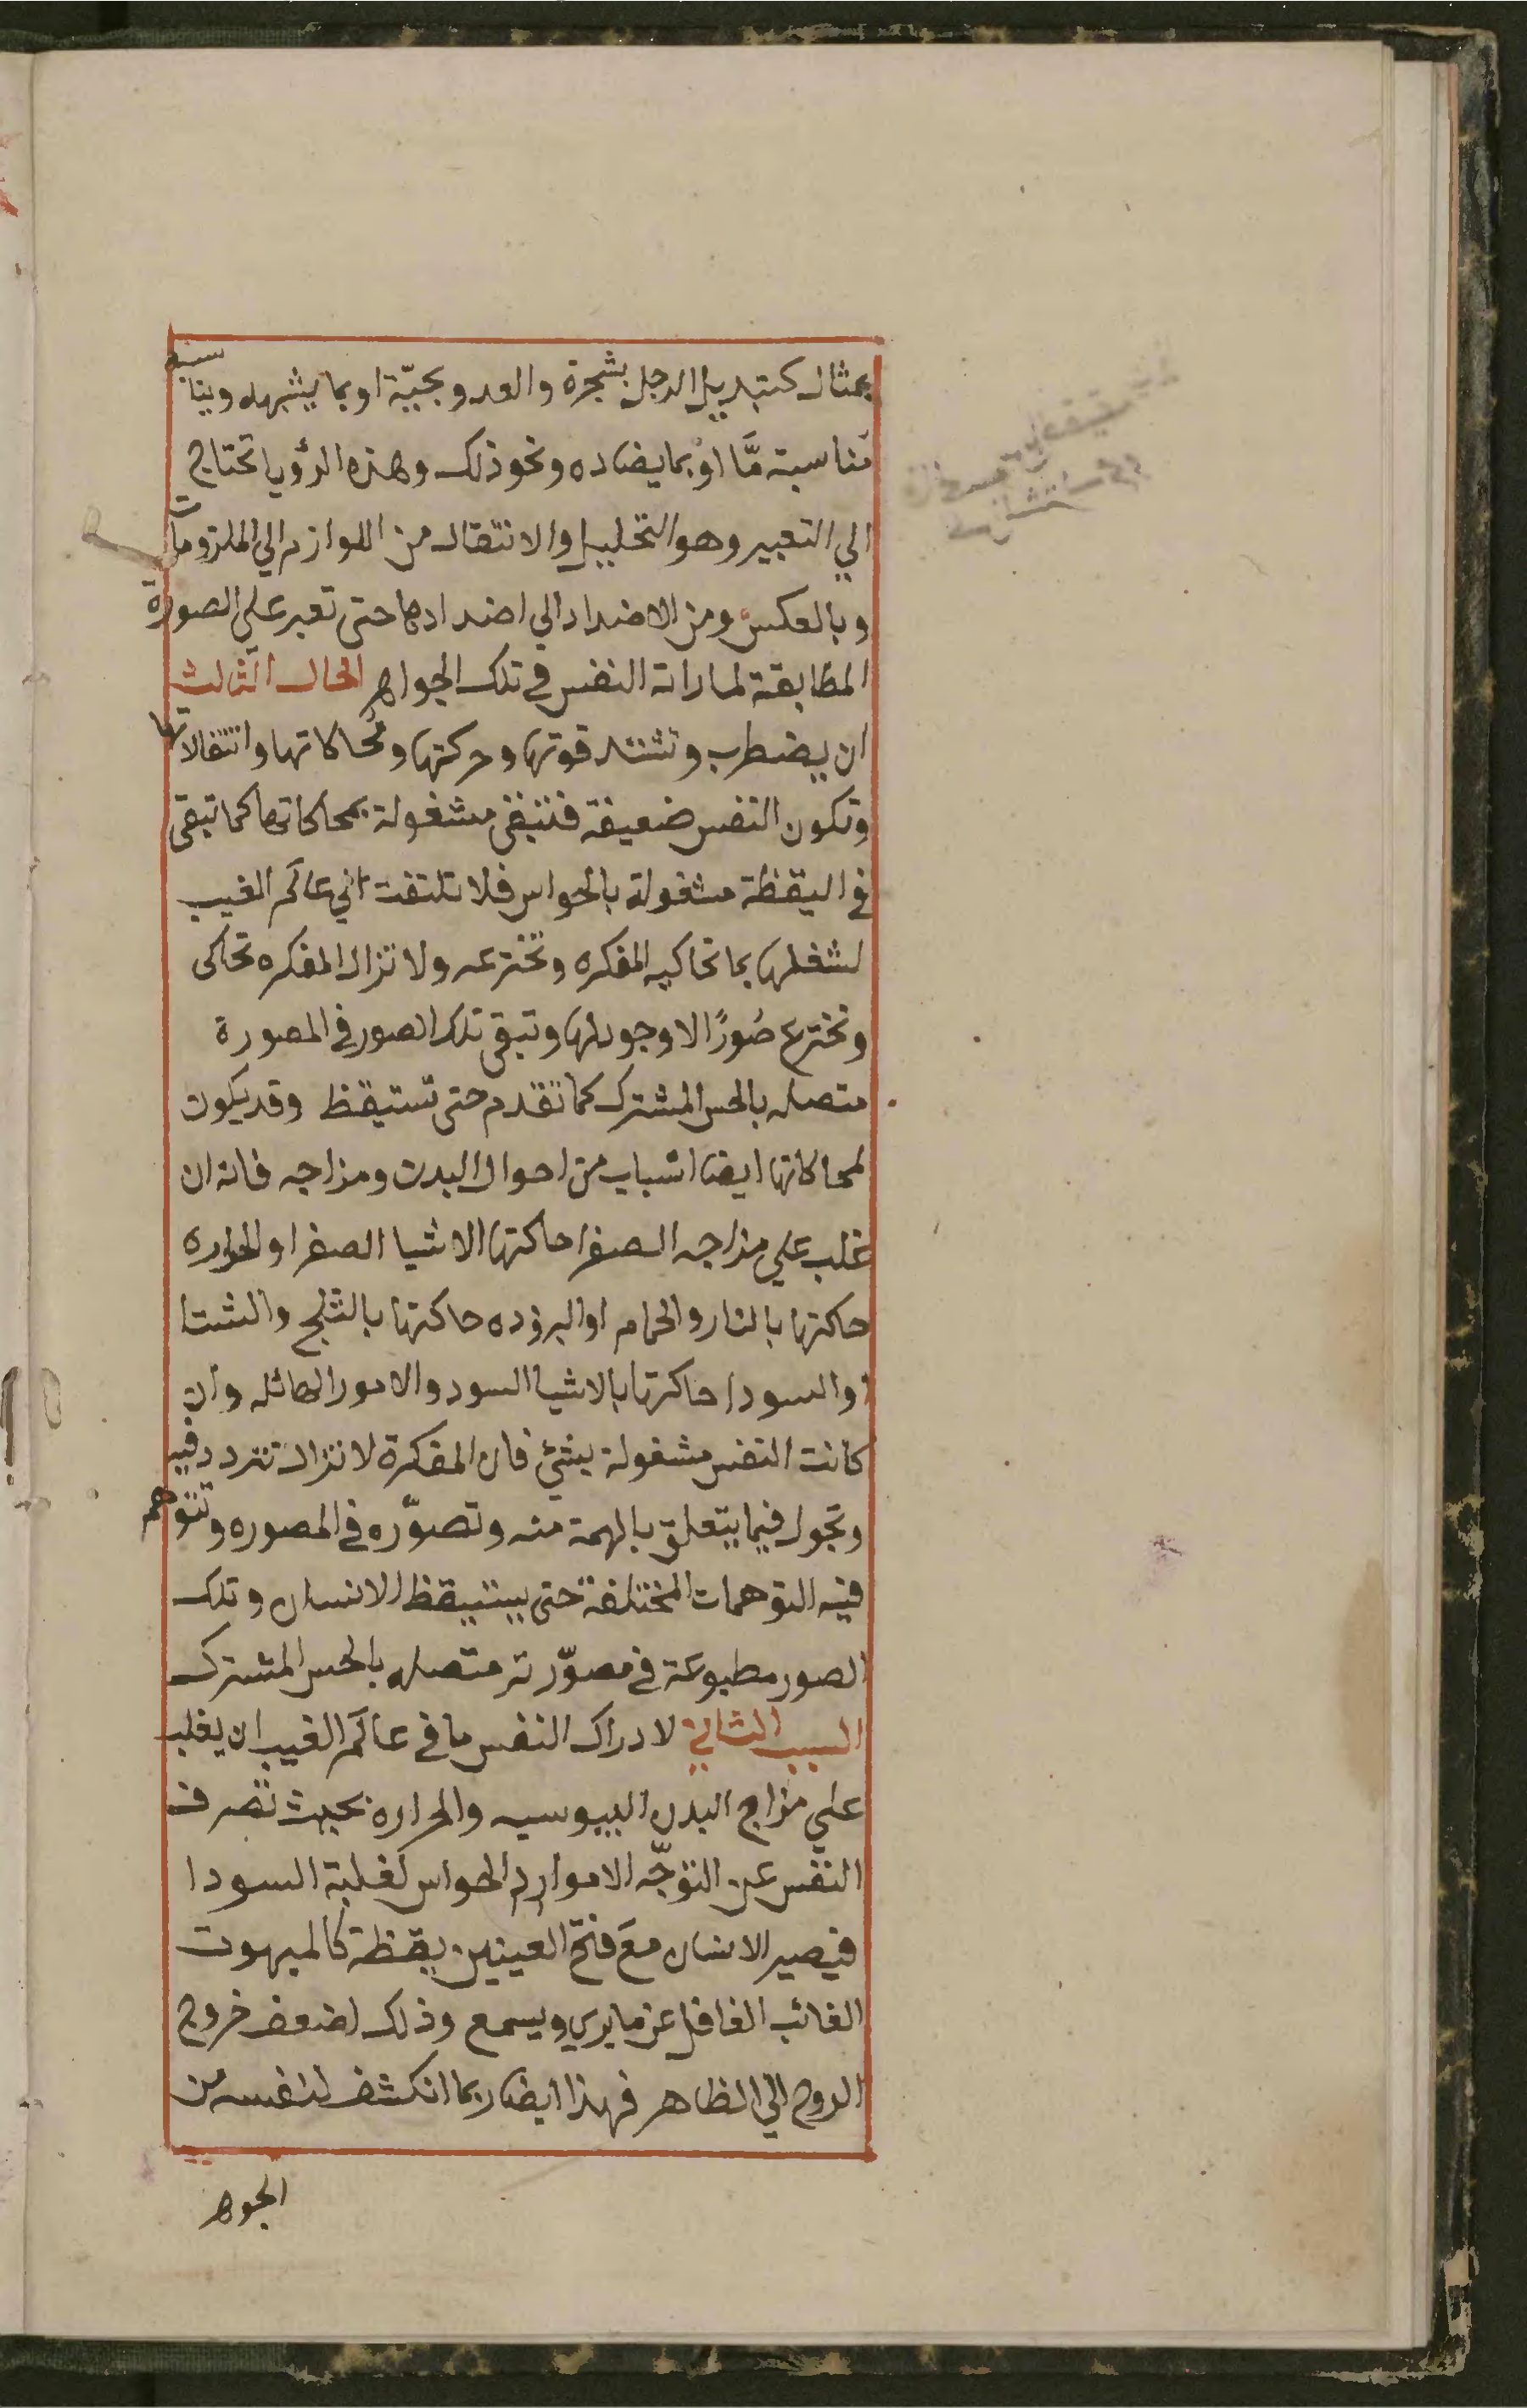 بمثال كتبديل الرجل بشجرة والعدو بحيّة او بما يشبهه ويناسبه
مناسبة مَّا اوْ بما يضاده ونحو ذلك وهذه الرؤيا تحتاج
الي التعبير وهو التحليل والانتقال من اللوازم الي الملزومات
وبالعكس ومن الاضداد الي اضدادها حتى تعبر علي الصورة
المطابقة لما راته النفس في تلك الجواهر الحال الثالث
ان يضطرب وتشتد قوتها وحركتها ومُحاكاتها وانتقالاتها
وتكون النفس ضعيفة فتبقى مشغولة بمحاكاتها كما تبقى
في اليقظة مشغولة بالحواس فلا تلتفت الي عالَم الغيب
لشغلها بما تحاكيه المفكره وتخترعه ولا تزال المفكره تحاكى
وتخترع صُورًا لا وجود لها وتبقى تلك الصور في المصورة
متصله بالحس المشترك كما تقدم حتى تستيقظ وقد يكون
لمحاكاتها ايضا اسباب من احوال البدن ومزاجه فانه ان
غلب علي مزاجه الصفرا حاكتها الاشيا الصفر او الحراره
حاكتها بالنار والحمام او البروده حاكتها بالثلج والشتا
او السودا حاكتها بالاشيا السود والامور الهائله وان
كانت النفس مشغولة بشئ فان المفكرة لا تزال تتردد فيه
وتجول فيما يتعلق بالهمة منه وتصوّره في المصوره وتتوهم
فيه التوهمات المختلفة حتى يستيقظ الانسان وتلك
الصور مطبوعة في مصوّرته متصله بالحس المشترك
السبب الثاني لادراك النفس ما في عالَم الغيب ان يغلب
علي مزاج البدن اليبوسيه والحراره بحيث تصرف
النفس عن التوجّه الا موارد الحواس لغلبة السودا
فيصير الانسان مع فتح العينين يقظة كالمبهوت
الغائب الغافل عن ما يري ويسمع وذلك لضعف خروج
الروح الي الظاهر فهذا ايضا ربما انكشف لنفسه من
الجوهر